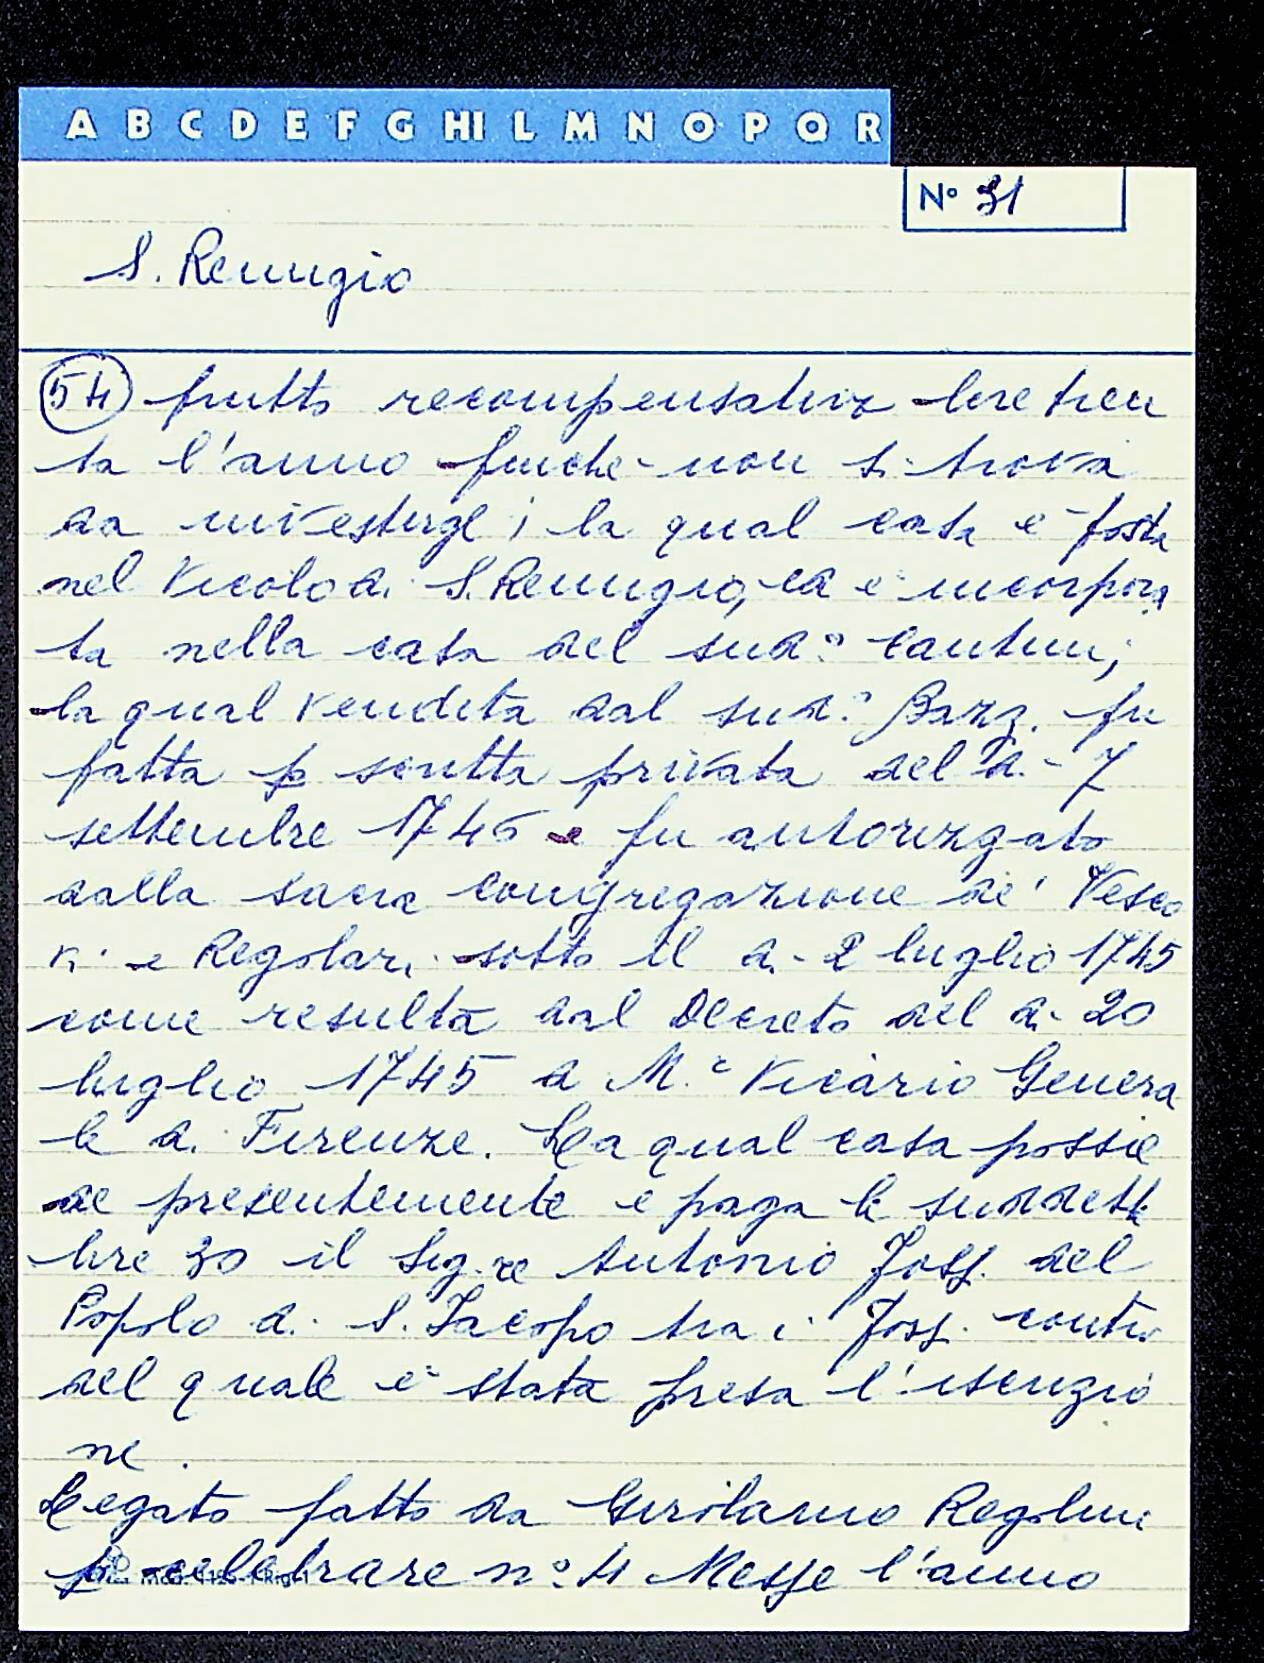 A B C D E F G HI L M N O P Q R
N° 31
S. Remigio
54 frutto recompensativo lire tren
ta l'anno finche non si trova
da investirgli; la qual casa è posta
nel Vicolo di S. Remigio, ed è incorpora
ta nella casa del sud.° Cantini;
la qual vendita dal sud.° Bazz. fu
fatta p scritta privata del dì 7
settembre 1746 e fu autorizzato
dalla sacra congregazione de' Vesco
vi e Regolari sotto il dì 2 luglio 1745
come resulta dal Decreto del dì 20
luglio 1745 a M.r Vicario Genera
le di Firenze. La qual casa possie
de presentemente e paga le suddette
lire 30 il Sig.re Antonio Foss. del
Popolo di S. Jacopo tra i Foss. contro
del quale è stata presa l'isenzio
ne.
Legato fatto da Girolamo Regolini
p celebrare n° 4 Messe l'anno